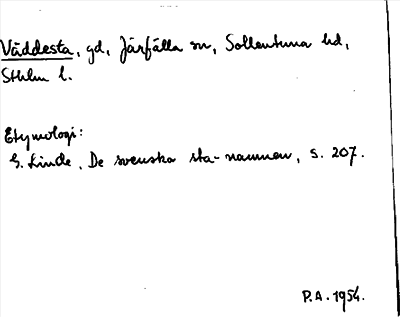 Väddesta, gd, Järfälla sn, Sollentuna hd,
Sthlm l.
Etymologi:
G. Linde, De svenska sta-namnen, s. 207.
P.A. 1954.